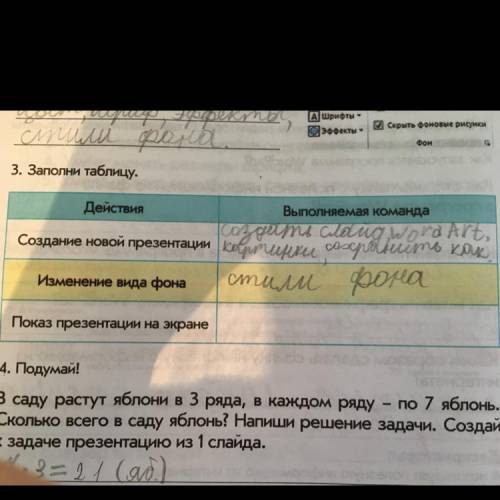 цвет, шрифт, эффекты,
стили фона.
Шрифты
Эффекты
Скрыть фоновые рисунки
Фон
3. Заполни таблицу.
Действия Выполняемая команда
Создание новой презентации создать слайд, word Art, картинки, сохранить как.
Изменение вида фона стили фона
Показ презентации на экране
4. Подумай!
В саду растут яблони в 3 ряда, в каждом ряду – по 7 яблонь.
Сколько всего в саду яблонь? Напиши решение задачи. Создай
к задаче презентацию из 1 слайда.
3=21 (яб.)